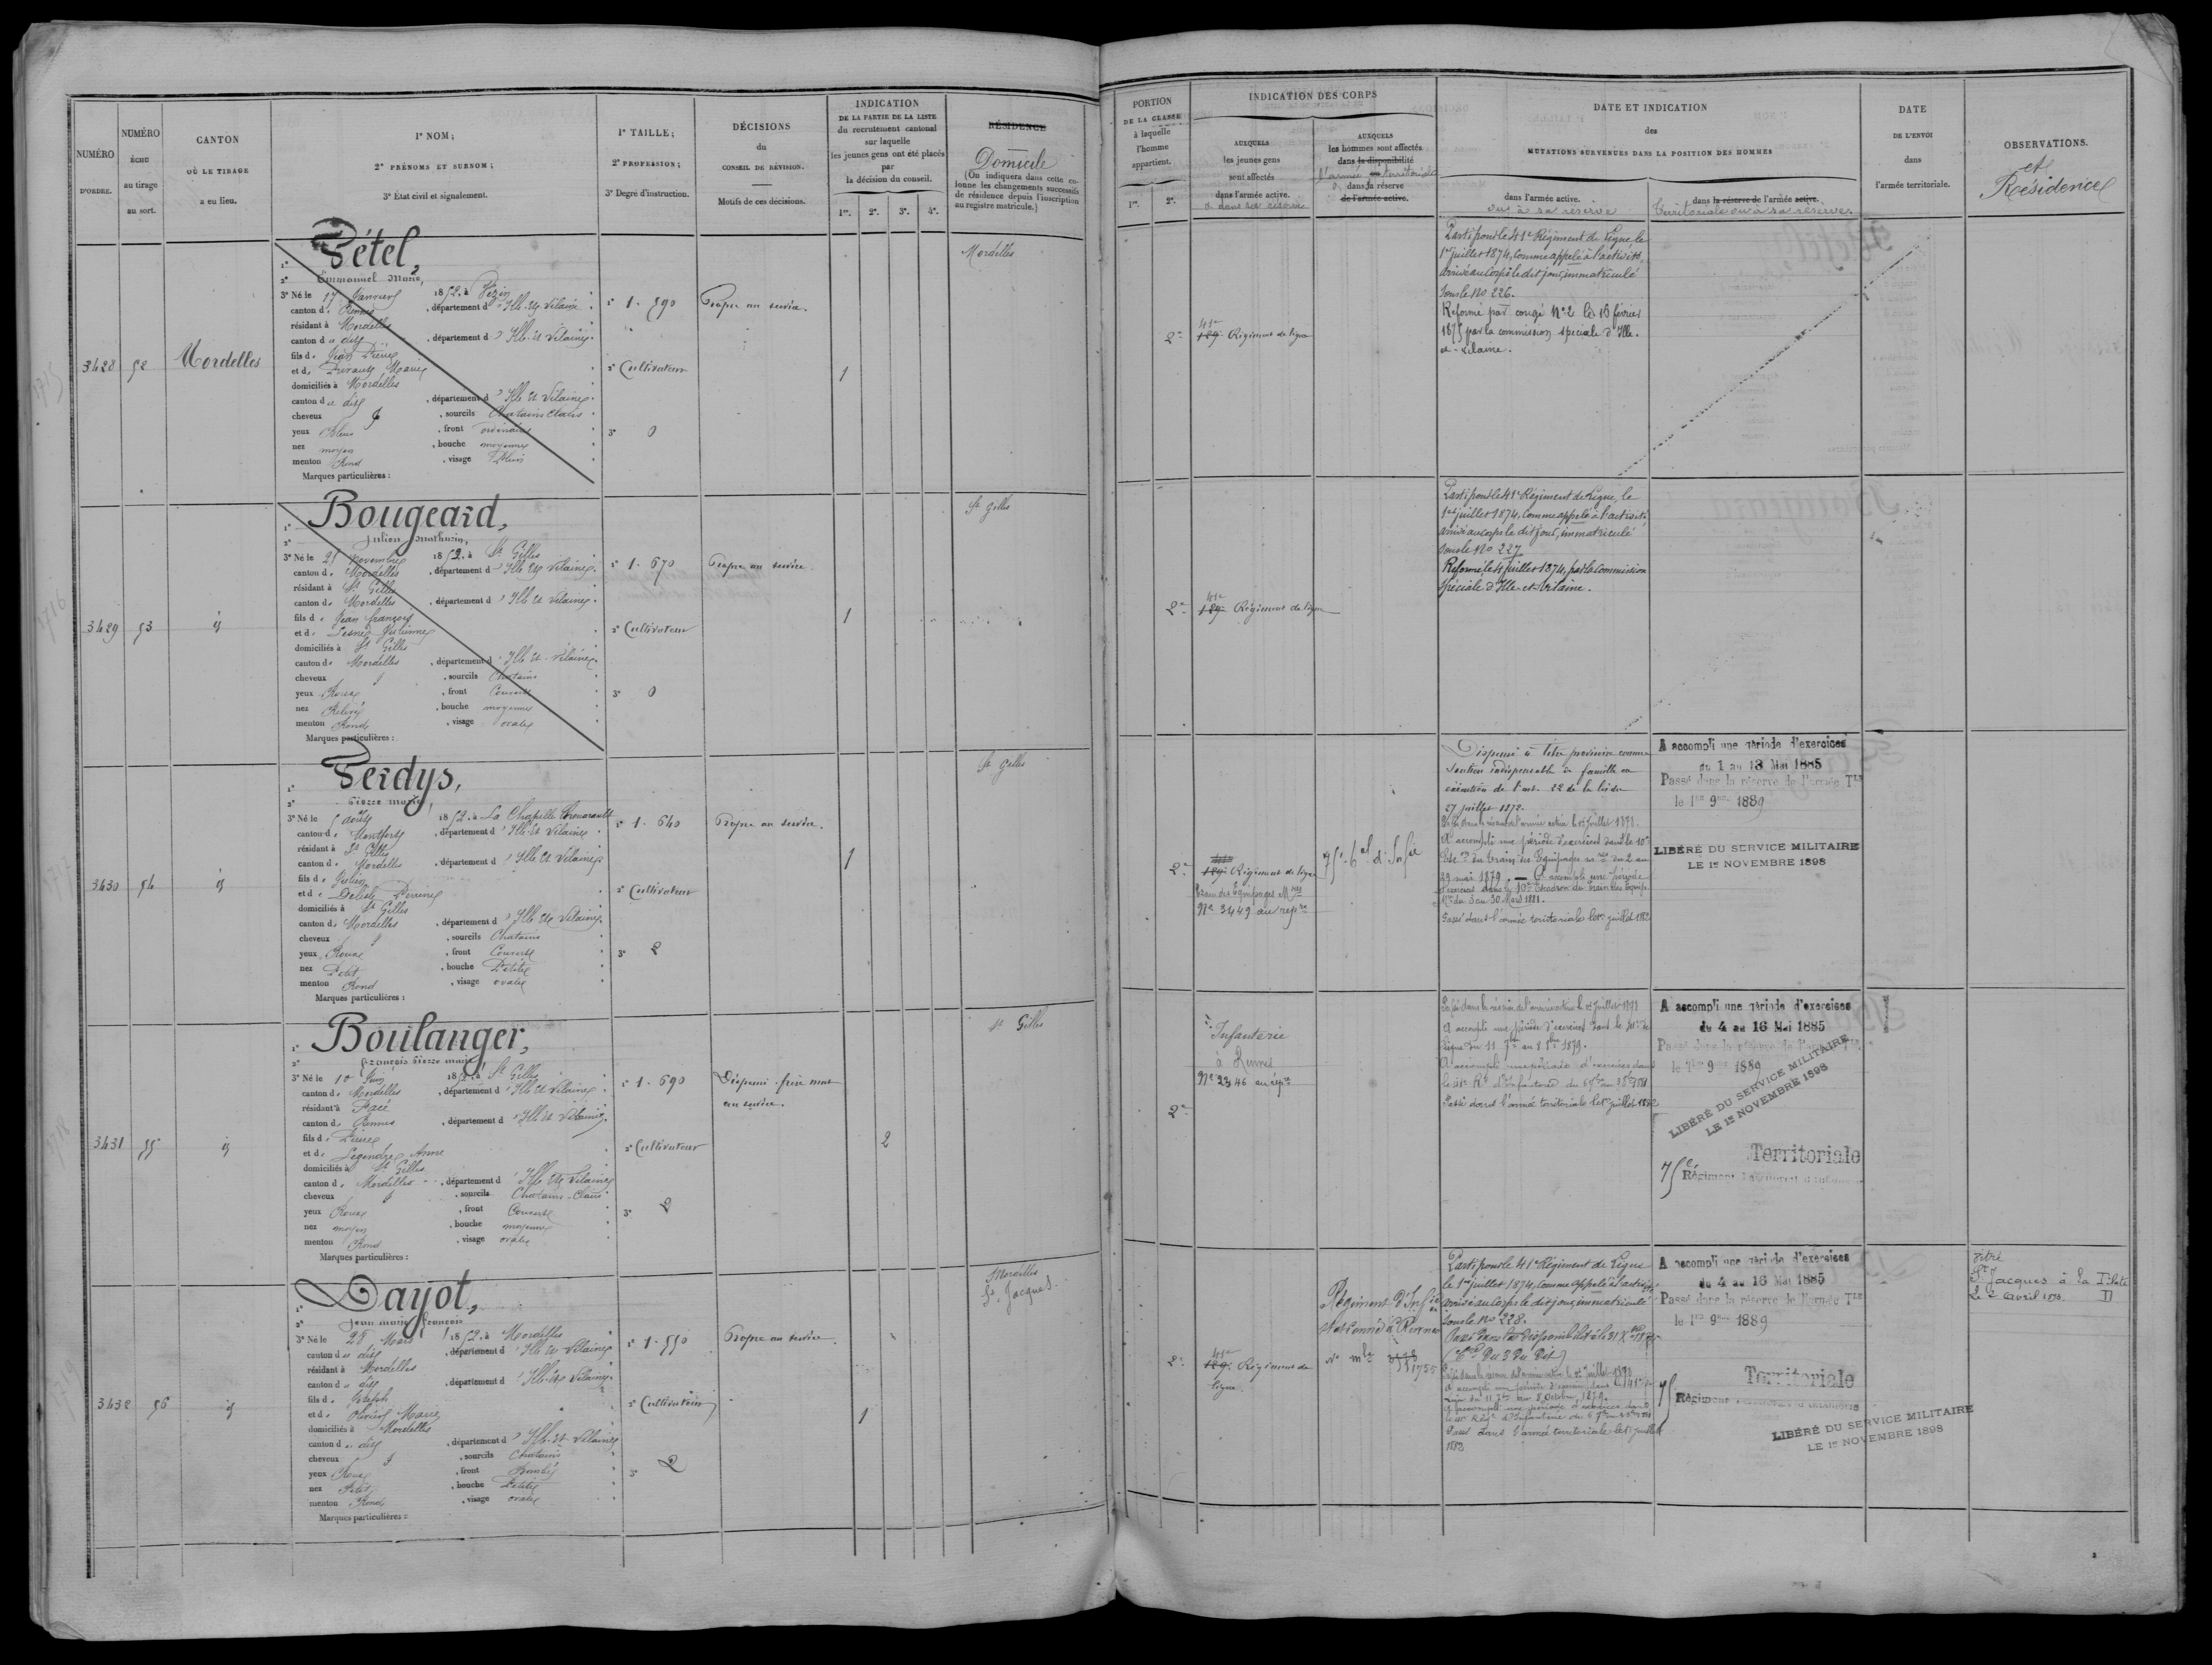 NUMÉRO
D'ORDRE.
NUMÉRO
ÉCHU
au tirage
au sort.
CANTON
OÙ LE TIRAGE
a eu lieu.
1º NOM;
2º PRÉNOMS ET SURNOM;
3º État civil et signalement.
1º TAILLE;
2º PROFESSION;
3º Degré d'instruction.
DÉCISIONS
du
CONSEIL DE RÉVISION.
Motifs de ces décisions.
INDICATION
DE LA PARTIE DE LA LISTE
du recrutement cantonal
sur laquelle
les jeunes gens ont été placés
par
la décision du conseil.
1re. 2e. 3e. 4e.
RÉSIDENCE
Domicile
(On indiquera dans cette co-
lonne les changements successifs
de résidence depuis l'inscription
au registre matricule.)
PORTION
DE LA CLASSE
à laquelle
l'homme
appartient.
1re. 2e.
INDICATION DES CORPS
AUXQUELS
les jeunes gens
sont affectés
dans l'armée active.
& dans sa réserve
AUXQUELS
les hommes sont affectés
dans la disponibilité
l'armée territoriale
ou dans la réserve
de l'armée active.
DATE ET INDICATION
des
MUTATIONS SURVENUES DANS LA POSITION DES HOMMES
dans l'armée active.
ou à sa réserve
dans la réserve de l'armée active.
territoriale ou à sa réserve
DATE
DE L'ENVOI
dans
l'armée territoriale.
OBSERVATIONS.
et
Résidence
3428
52
Mordelles
1º Pétel,
2º Emmanuel Marie,
3º Né le 17 Janvier 1852, à Vezin
canton de Rennes, département d'Ille-et-Vilaine
résidant à Mordelles
canton du dit, département d'Ille-et-Vilaine
fils de Jean Pierre
et de Durand Marie
domiciliés à Mordelles
canton du dit, département d'Ille et Vilaine
cheveux &, sourcils Chatains clairs
yeux bleus, front ordinaire
nez moyen, bouche moyenne
menton Rond, visage Plein
Marques particulières :
1º 1.590
2º Cultivateur
3º 0
Propre au service.
1
Mordelles
2e
41e
129e Régiment de ligne
Parti pour le 41e Régiment de Ligne le
1er juillet 1874, comme appelé à l'activité,
arrivé au corps le dit jour, immatriculé
sous le No 226.
Réformé par congé Nº 2 le 16 février
1875 par la commission spéciale d'Ille-
et-Vilaine.
3429
53
id
1º Bougeard,
2º Julien Mathurin,
3º Né le 25 Novembre 1852, à St Gilles
canton de Mordelles, département d'Ille et Vilaine
résidant à St Gilles
canton de Mordelles, département d'Ille et Vilaine
fils de Jean François
et de Julienne
domiciliés à St Gilles
canton de Mordelles, département d'Ille et Vilaine
cheveux &, sourcils Chatains
yeux Roux, front Couvert
nez Relevé, bouche moyenne
menton Rond, visage ovale
Marques particulières :
1º 1.670
2º Cultivateur
3º 0
Propre au service.
1
St Gilles
2e
41e
129e Régiment de ligne
Parti pour le 41e Régiment de Ligne, le
1er juillet 1874, comme appelé à l'activité,
arrivé au corps le dit jour, immatriculé
sous le No 227
Réformé le juillet 1874, par la Commission
Spéciale d'Ille-et-Vilaine.
3430
54
id
1º Perdys,
2º Pierre Marie,
3º Né le 5 août 1852, à La Chapelle Thouarault
canton de Montfort, département d'Ille et Vilaine
résidant à St Gilles
canton de Mordelles, département d'Ille et Vilaine
fils de Julien
et de Perrine
domiciliés à St Gilles
canton de Mordelles, département d'Ille et Vilaine
cheveux &, sourcils Chatains
yeux Roux, front Couvert
nez Petit, bouche Petite
menton Rond, visage ovale
Marques particulières :
1º 1.640
2º Cultivateur
3º 2
Propre au service.
1
St Gilles
2e
129e Régiment de ligne
Train des Equipages Mres
No 3449 au rép.re
75e d'Infie
Dispensé à titre provisoire comme
soutien indispensable de famille en
exécution de l'art. 22 de la loi du
27 juillet 1872.
Passé dans la réserve de l'armée active le 1er juillet 1878.
A accompli une période d'exercices dans le 10e
du train des Equipages du 2 au
29 mai 1879. — A accompli une période
d'exercices dans le 10e Escadron du train des Equip.
Mres du 3 au 30 Mars 1881.
Passé dans l'armée territoriale le 1er juillet 1882
A accompli une période d'exercices
du 1 au 13 Mai 1885
Passé dans la réserve de l'armée Tle
le 1er 9bre 1889
LIBÉRÉ DU SERVICE MILITAIRE
LE 1er NOVEMBRE 1898
3431
55
id
1º Boulanger,
2º François Pierre Marie,
3º Né le 10 Juin 1852, à St Gilles
canton de Mordelles, département d'Ille et Vilaine
résidant à Pacé
canton de Rennes, département d'Ille et Vilaine
fils de Pierre
et de Legendre Anne
domiciliés à St Gilles
canton de Mordelles, département d'Ille et Vilaine
cheveux &, sourcils Chatains-Clairs
yeux Roux, front Couvert
nez moyen, bouche moyenne
menton Rond, visage ovale
Marques particulières :
1º 1.690
2º Cultivateur
3º 2
Dispensé. frère mort
au service.
2
St Gilles
2e
Infanterie
à Rennes
No 2346 au rép.re
Passé dans la réserve de l'armée active le 1er juillet 1878
A accompli une période d'exercices dans le 41e de
ligne du 11 7bre au 8 8bre 1879.
A accompli une période d'exercices dans
le 41e Rt d'Infanterie du 6 7bre au 3 8bre 1881
Passé dans l'armée territoriale le 1er juillet 1882
A accompli une période d'exercices
du 4 au 16 Mai 1885
Passé dans la réserve de l'armée Tle
le 1er 9bre 1889
LIBÉRÉ DU SERVICE MILITAIRE
LE 1er NOVEMBRE 1898
Territoriale
75e Régiment
3432
56
id
1º Dayot,
2º Jean Marie François
3º Né le 28 Mars 1852, à Mordelles
canton du dit, département d'Ille et Vilaine
résidant à Mordelles
canton du dit, département d'Ille et Vilaine
fils de Joseph
et de Olivier Marie
domiciliés à Mordelles
canton du dit, département d'Ille et Vilaine
cheveux &, sourcils Chatains
yeux Roux, front Bombé
nez Petit, bouche Petite
menton Rond, visage ovale
Marques particulières :
1º 1.550
2º Cultivateur
3º 2
Propre au service
1
Mordelles
St Jacques
2e
41e
129e Régiment de
ligne
Régiment d'Infie
stationné à Rennes
No mle 1955
Parti pour le 41e Régiment de Ligne
le 1er juillet 1874, comme appelé à l'activité
arrivé au corps le dit jour, immatriculé
sous le No 228.
Passé dans la disponibilité le 31 Xbre
(Con du 3 du dit)
Passé dans la réserve de l'armée active le 1er juillet 1878
A accompli une période d'exercices dans le 41e de
ligne du 11 7bre au 8 Octobre 1879.
A accompli une période d'exercices dans
le 41e Régt d'Infanterie du 6 7bre au 3 8bre 1881
Passé dans l'armée territoriale le 1er juillet
1883
A accompli une période d'exercices
du 4 au 16 Mai 1885
Passé dans la réserve de l'armée Tle
le 1er 9bre 1889
Territoriale
75 Régiment
LIBÉRÉ DU SERVICE MILITAIRE
LE 1er NOVEMBRE 1898
Vitré
St Jacques à la
avril